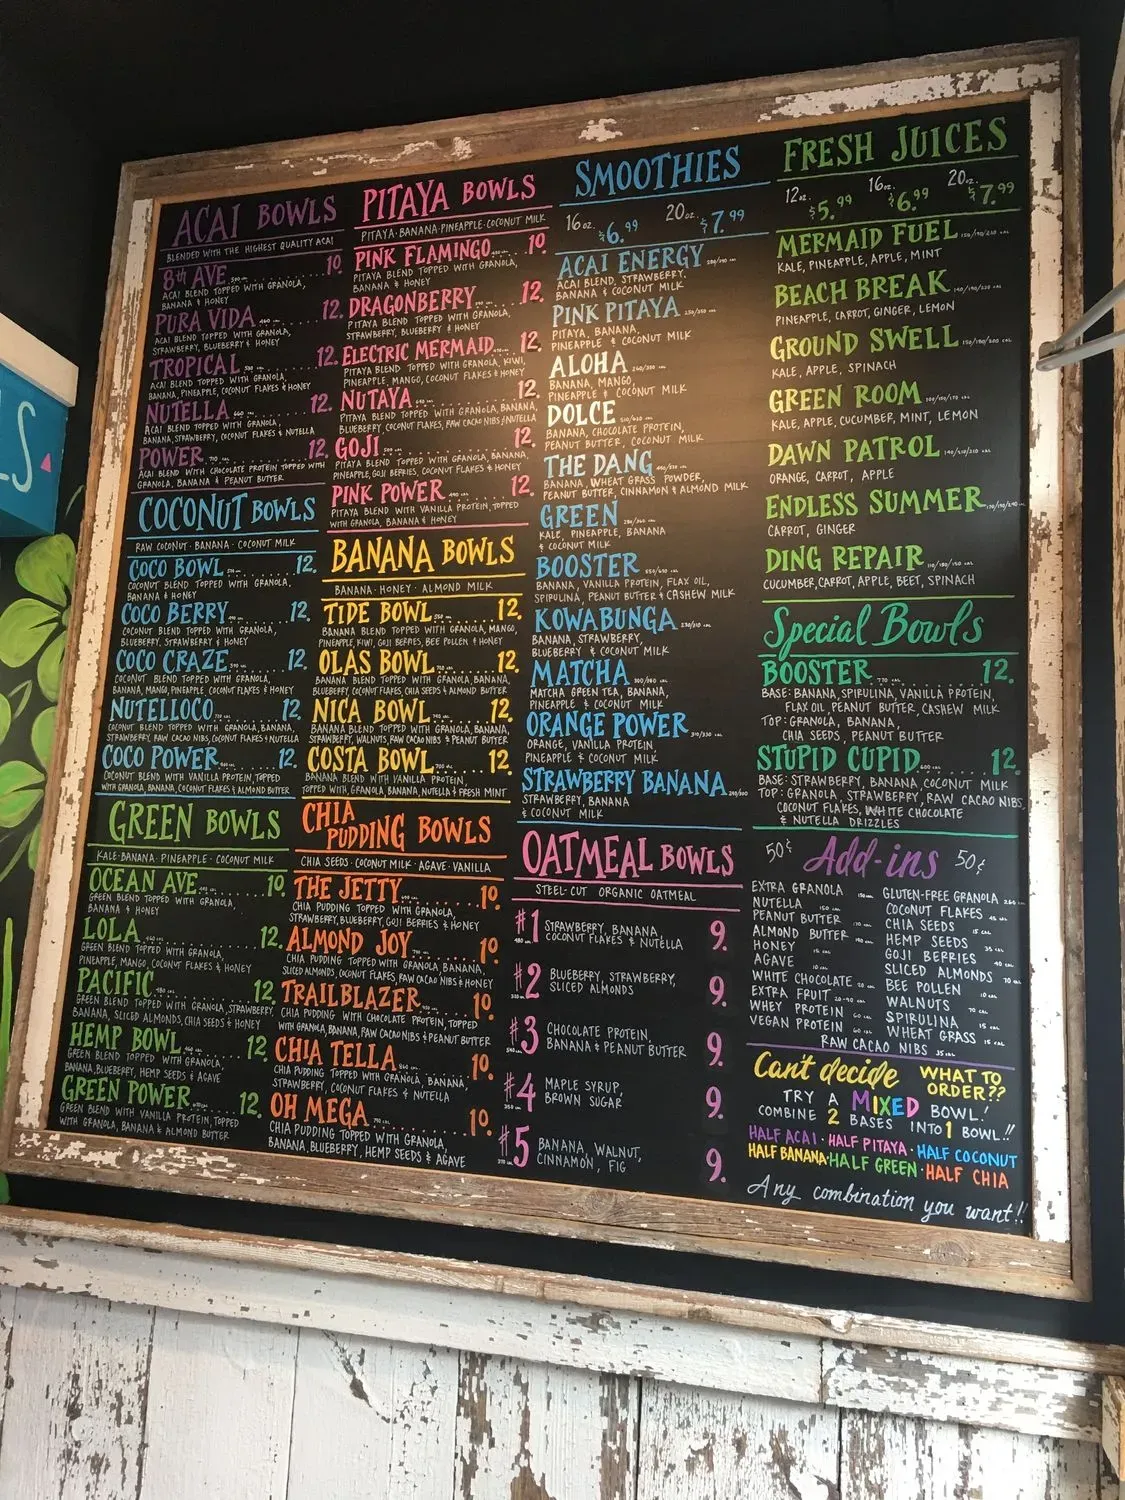 ACAI BOWLS
BLENDED WITH THE HIGHEST QUALITY ACAI
8th AVE 10.
ACAI BLEND TOPPED WITH GRANOLA,
BANANA & HONEY
PURA VIDA 12.
ACAI BLEND TOPPED WITH GRANOLA,
STRAWBERRY, BLUEBERRY & HONEY
TROPICAL 12.
ACAI BLEND TOPPED WITH GRANOLA,
BANANA, PINEAPPLE, COCONUT FLAKES & HONEY
NUTELLA 12.
ACAI BLEND TOPPED WITH GRANOLA,
BANANA, STRAWBERRY, COCONUT FLAKES & NUTELLA
POWER 12.
ACAI BLEND WITH CHOCOLATE PROTEIN TOPPED WITH
GRANOLA, BANANA & PEANUT BUTTER
COCONUT BOWLS
RAW COCONUT · BANANA · COCONUT MILK
COCO BOWL 12.
COCONUT BLEND TOPPED WITH GRANOLA,
BANANA & HONEY
COCO BERRY 12.
COCONUT BLEND TOPPED WITH GRANOLA,
BLUEBERRY, STRAWBERRY & HONEY
COCO CRAZE 12.
COCONUT BLEND TOPPED WITH GRANOLA,
BANANA, MANGO, PINEAPPLE, COCONUT FLAKES & HONEY
NUTELLOCO 12.
COCONUT BLEND TOPPED WITH GRANOLA, BANANA,
STRAWBERRY, RAW CACAO NIBS, COCONUT FLAKES & NUTELLA
COCO POWER 12.
COCONUT BLEND WITH VANILLA PROTEIN, TOPPED
WITH GRANOLA, BANANA, COCONUT FLAKES & ALMOND BUTTER
GREEN BOWLS
KALE · BANANA · PINEAPPLE · COCONUT MILK
OCEAN AVE 10.
GREEN BLEND TOPPED WITH GRANOLA,
BANANA & HONEY
LOLA 12.
GREEN BLEND TOPPED WITH GRANOLA,
PINEAPPLE, MANGO, COCONUT FLAKES & HONEY
PACIFIC 12.
GREEN BLEND TOPPED WITH GRANOLA, STRAWBERRY,
BANANA, SLICED ALMONDS, CHIA SEEDS & HONEY
HEMP BOWL 12.
GREEN BLEND TOPPED WITH GRANOLA,
BANANA, BLUEBERRY, HEMP SEEDS & AGAVE
GREEN POWER 12.
GREEN BLEND WITH VANILLA PROTEIN, TOPPED
WITH GRANOLA, BANANA & ALMOND BUTTER
PITAYA BOWLS
PITAYA · BANANA · PINEAPPLE · COCONUT MILK
PINK FLAMINGO 10.
PITAYA BLEND TOPPED WITH GRANOLA,
BANANA & HONEY
DRAGONBERRY 12.
PITAYA BLEND TOPPED WITH GRANOLA,
STRAWBERRY, BLUEBERRY & HONEY
ELECTRIC MERMAID 12.
PITAYA BLEND TOPPED WITH GRANOLA, KIWI,
PINEAPPLE, MANGO, COCONUT FLAKES & HONEY
NUTAYA 12.
PITAYA BLEND TOPPED WITH GRANOLA, BANANA,
BLUEBERRY, COCONUT FLAKES, RAW CACAO NIBS & NUTELLA
GOJI 12.
PITAYA BLEND TOPPED WITH GRANOLA, BANANA,
PINEAPPLE, GOJI BERRIES, COCONUT FLAKES & HONEY
PINK POWER 12.
PITAYA BLEND WITH VANILLA PROTEIN, TOPPED
WITH GRANOLA, BANANA & HONEY
BANANA BOWLS
BANANA · HONEY · ALMOND MILK
TIDE BOWL 12.
BANANA BLEND TOPPED WITH GRANOLA, MANGO,
PINEAPPLE, KIWI, GOJI BERRIES, BEE POLLEN & HONEY
OLAS BOWL 12.
BANANA BLEND TOPPED WITH GRANOLA, BANANA,
BLUEBERRY, COCONUT FLAKES, CHIA SEEDS & ALMOND BUTTER
NICA BOWL 12.
BANANA BLEND TOPPED WITH GRANOLA, BANANA,
STRAWBERRY, WALNUTS, RAW CACAO NIBS & PEANUT BUTTER
COSTA BOWL 12.
BANANA BLEND WITH VANILLA PROTEIN,
TOPPED WITH GRANOLA, BANANA, NUTELLA & FRESH MINT
CHIA
PUDDING BOWLS
CHIA SEEDS · COCONUT MILK · AGAVE · VANILLA
THE JETTY 10.
CHIA PUDDING TOPPED WITH GRANOLA,
STRAWBERRY, BLUEBERRY, GOJI BERRIES & HONEY
ALMOND JOY 10.
CHIA PUDDING TOPPED WITH GRANOLA, BANANA,
SLICED ALMONDS, COCONUT FLAKES, RAW CACAO NIBS & HONEY
TRAILBLAZER 10.
CHIA PUDDING WITH CHOCOLATE PROTEIN, TOPPED
WITH GRANOLA, BANANA, RAW CACAO NIBS & PEANUT BUTTER
CHIA TELLA 10.
CHIA PUDDING TOPPED WITH GRANOLA, BANANA,
STRAWBERRY, COCONUT FLAKES & NUTELLA
OH MEGA 10.
CHIA PUDDING TOPPED WITH GRANOLA,
BANANA, BLUEBERRY, HEMP SEEDS & AGAVE
SMOOTHIES
16oz. $6.99 20oz. $7.99
ACAI ENERGY
ACAI BLEND, STRAWBERRY,
BANANA & COCONUT MILK
PINK PITAYA
PITAYA, BANANA,
PINEAPPLE & COCONUT MILK
ALOHA
BANANA, MANGO,
PINEAPPLE & COCONUT MILK
DOLCE
BANANA, CHOCOLATE PROTEIN,
PEANUT BUTTER, COCONUT MILK
THE DANG
BANANA, WHEAT GRASS POWDER,
PEANUT BUTTER, CINNAMON & ALMOND MILK
GREEN
KALE, PINEAPPLE, BANANA
& COCONUT MILK
BOOSTER
BANANA, VANILLA PROTEIN, FLAX OIL,
SPIPULINA, PEANUT BUTTER & CASHEW MILK
KOWABUNGA
BANANA, STRAWBERRY,
BLUEBERRY & COCONUT MILK
MATCHA
MATCHA GREEN TEA, BANANA,
PINEAPPLE & COCONUT MILK
ORANGE POWER
ORANGE, VANILLA PROTEIN,
PINEAPPLE & COCONUT MILK
STRAWBERRY BANANA
STRAWBERRY, BANANA
& COCONUT MILK
OATMEAL BOWLS
STEEL-CUT ORGANIC OATMEAL
#1 STRAWBERRY, BANANA, 9.
COCONUT FLAKES & NUTELLA
#2 BLUEBERRY, STRAWBERRY, 9.
SLICED ALMONDS
#3 CHOCOLATE PROTEIN, 9.
BANANA & PEANUT BUTTER
#4 MAPLE SYRUP, 9.
BROWN SUGAR
#5 BANANA, WALNUT, 9.
CINNAMON, FIG
FRESH JUICES
12oz. $5.99 16oz. $6.99 20oz. $7.99
MERMAID FUEL
KALE, PINEAPPLE, APPLE, MINT
BEACH BREAK
PINEAPPLE, CARROT, GINGER, LEMON
GROUND SWELL
KALE, APPLE, SPINACH
GREEN ROOM
KALE, APPLE, CUCUMBER, MINT, LEMON
DAWN PATROL
ORANGE, CARROT, APPLE
ENDLESS SUMMER
CARROT, GINGER
DING REPAIR
CUCUMBER, CARROT, APPLE, BEET, SPINACH
Special Bowls
BOOSTER 12.
BASE: BANANA, SPIRULINA, VANILLA PROTEIN,
FLAX OIL, PEANUT BUTTER, CASHEW MILK
TOP: GRANOLA, BANANA,
CHIA SEEDS, PEANUT BUTTER
STUPID CUPID 12.
BASE: STRAWBERRY, BANANA, COCONUT MILK
TOP: GRANOLA, STRAWBERRY, RAW CACAO NIBS,
COCONUT FLAKES, WHITE CHOCOLATE
& NUTELLA DRIZZLES
50¢ Add-ins 50¢
EXTRA GRANOLA
NUTELLA
PEANUT BUTTER
ALMOND BUTTER
HONEY
AGAVE
WHITE CHOCOLATE
EXTRA FRUIT
WHEY PROTEIN
VEGAN PROTEIN
GLUTEN-FREE GRANOLA
COCONUT FLAKES
CHIA SEEDS
HEMP SEEDS
GOJI BERRIES
SLICED ALMONDS
BEE POLLEN
WALNUTS
SPIRULINA
WHEAT GRASS
RAW CACAO NIBS
Can't decide WHAT TO
ORDER??
TRY A MIXED BOWL!
COMBINE 2 BASES INTO 1 BOWL!!
HALF ACAI · HALF PITAYA · HALF COCONUT
HALF BANANA · HALF GREEN · HALF CHIA
Any combination you want!!
LS